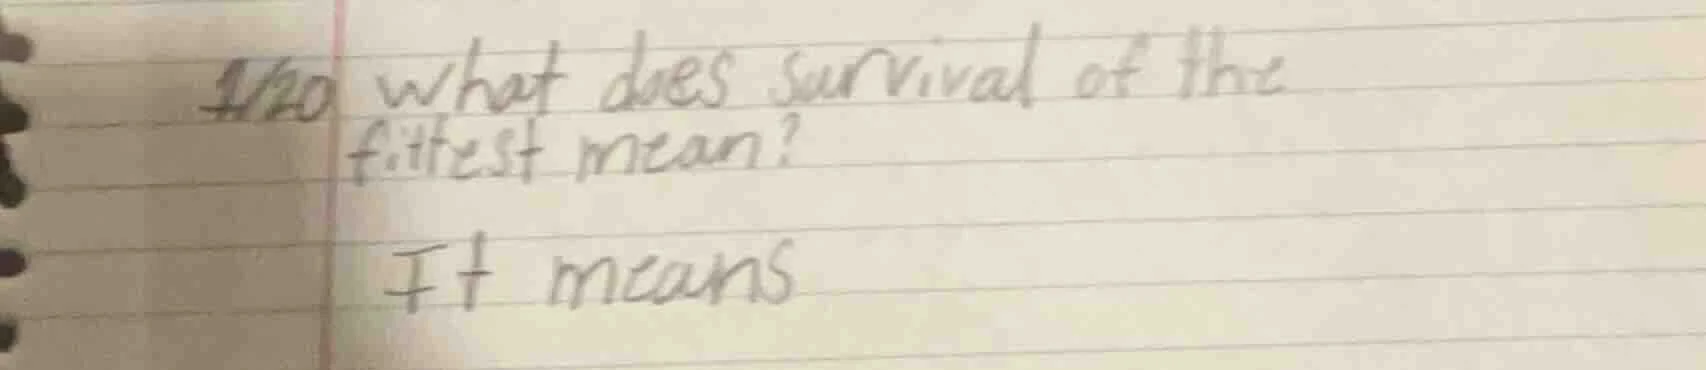 1/20 what does survival of the
fittest mean?
It means